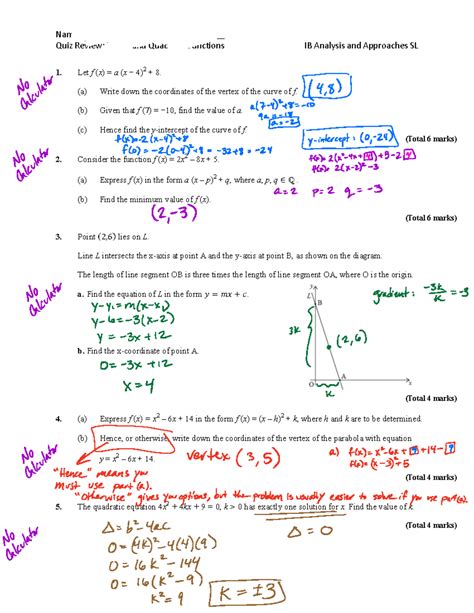 Nam
Quiz Review: and Quad Functions IB Analysis and Approaches SL
No Calculator
1. Let f(x) = a (x − 4)² + 8.
(a) Write down the coordinates of the vertex of the curve of f. (4,8)
(b) Given that f (7) = −10, find the value of a. a(7-4)²+8=-10
9a = -18
a = -2
(c) Hence find the y-intercept of the curve of f.
f(x)=-2(x-4)²+8
f(0) = -2(0-4)²+8 = -32+8 = -24
y-intercept : (0,-24)
(Total 6 marks)
No Calculator
2. Consider the function f(x) = 2x² − 8x + 5.
f(x)= 2(x²-4x+4)+5-2·4
f(x) = 2(x-2)²-3
(a) Express f(x) in the form a (x − p)² + q, where a, p, q ∈ ℚ.
a=2 p=2 q=-3
(b) Find the minimum value of f(x).
(2,-3)
(Total 6 marks)
No Calculator
3. Point (2,6) lies on L.
Line L intersects the x-axis at point A and the y-axis at point B, as shown on the diagram.
The length of line segment OB is three times the length of line segment OA, where O is the origin.
a. Find the equation of L in the form y = mx + c.
gradient: -3k/k = -3
y-y₁=m(x-x₁)
y-6=-3(x-2)
y = -3x+12
b. Find the x-coordinate of point A.
0=-3x+12
x=4
y
L
B
3k
(2,6)
O
A
x
k
(Total 4 marks)
4. (a) Express f(x) = x² − 6x + 14 in the form f(x) = (x − h)² + k, where h and k are to be determined.
No Calculator
(b) Hence, or otherwise, write down the coordinates of the vertex of the parabola with equation
y = x² − 6x + 14.
vertex (3,5)
a) f(x)=x²-6x+9+14-9
f(x)=(x-3)+5
(Total 4 marks)
"Hence" means you
must use part (a).
"Otherwise" gives you options, but the problem is usually easier to solve if you use part (a).
No Calculator
5. The quadratic equation 4x² + 4kx + 9 = 0, k > 0 has exactly one solution for x. Find the value of k.
(Total 4 marks)
Δ = b²-4ac
Δ = 0
0=(4k)²-4(4)(9)
0=16k²-144
0=16(k²-9)
k²=9
k = ±3